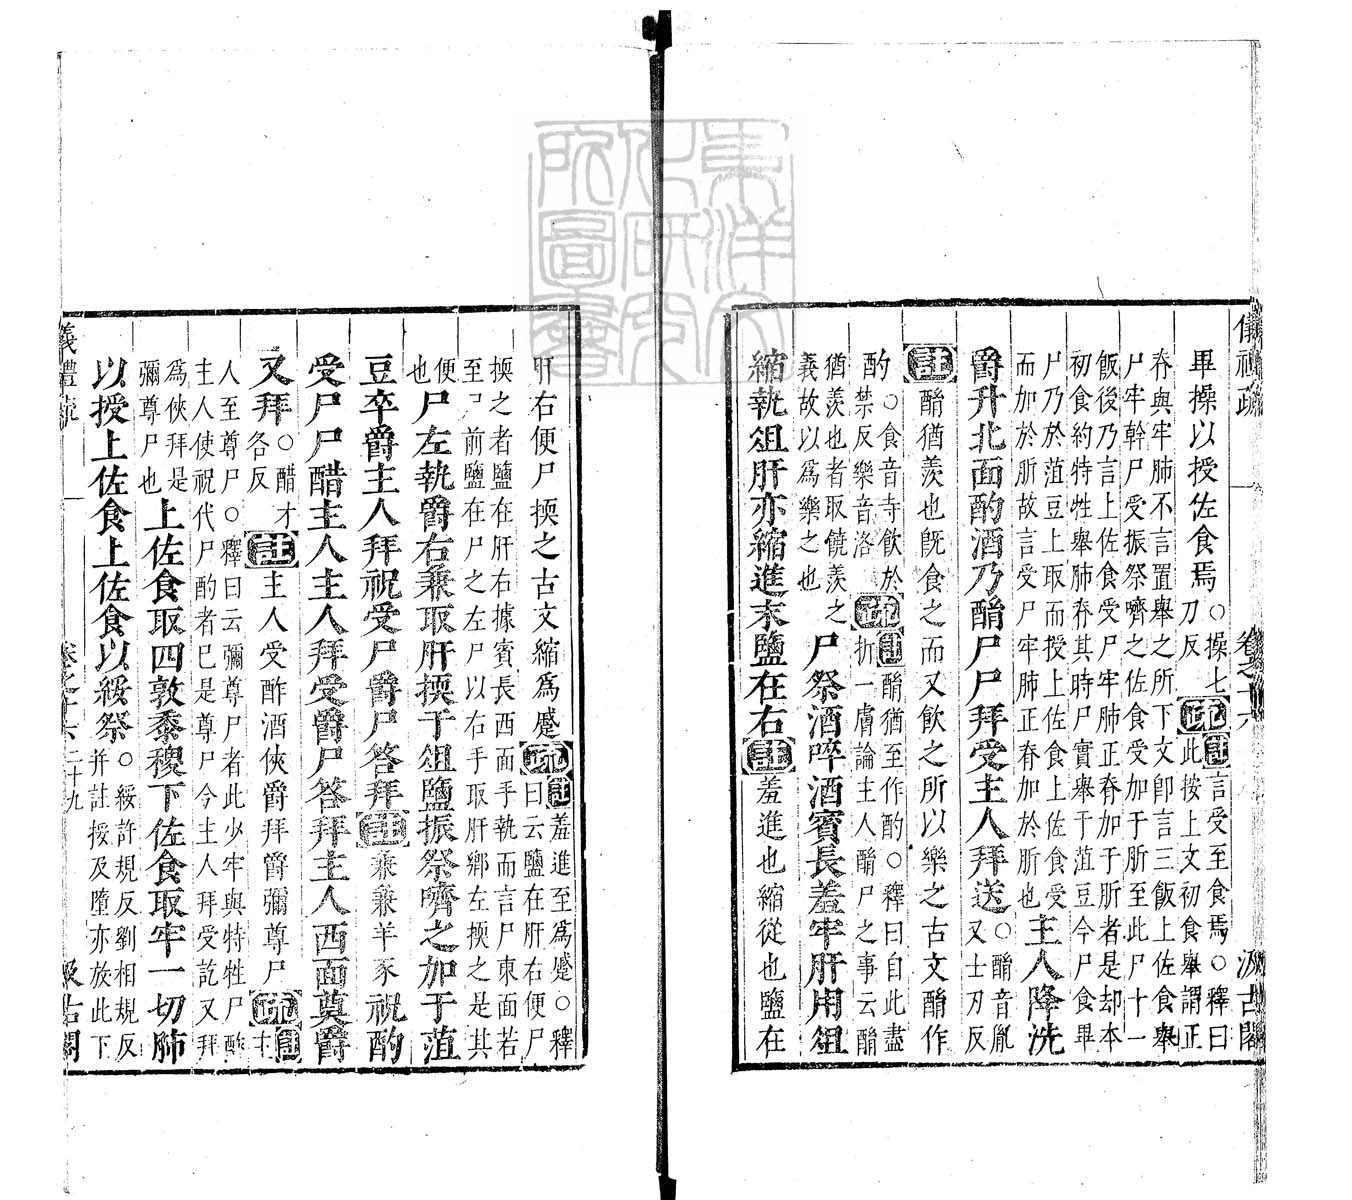 儀禮疏 卷之十六 汲古閣
畢操以授佐食焉○操七刀反疏註言受至食焉○釋曰此按上文初食舉謂正
脊與牢肺不言置舉之所下文卽言三飯上佐食舉
尸牢幹尸受振祭嚌之佐食受加于肵至此尸十一
飯後乃言上佐食受尸牢肺正脊加于肵者是却本
初食約特牲舉肺脊其時尸實舉于菹豆今尸食畢
尸乃於菹豆上取而授上佐食上佐食受
而加於肵故言受尸牢肺正脊加於肵也主人降洗
爵升北面酌酒乃酳尸尸拜受主人拜送○酳音胤又士刃反
註酳猶羨也旣食之而又飲之所以樂之古文酳作
酌○食音寺飲於酌禁反樂音洛疏註酳猶至作酌○釋曰自此盡折一膚論主人酳尸之事云酳
猶羨也者取饒羨之義故以爲樂之也尸祭酒啐酒賓長羞牢肝用俎
縮執俎肝亦縮進末鹽在右註羞進也縮從也鹽在
肝右便尸㨎之古文縮爲蹙疏註羞進至爲蹙○釋曰云鹽在肝右便尸
㨎之者鹽在肝右據賓長西面手執而言尸東面若
至尸前鹽在尸之左尸以右手取肝鄉左㨎之是其
便也尸左執爵右兼取肝㨎于俎鹽振祭嚌之加于菹
豆卒爵主人拜祝受尸爵尸答拜註兼兼羊豕祝酌
受尸尸醋主人主人拜受爵尸答拜主人西面奠爵
又拜○醋才各反註主人受酢酒俠爵拜爵彌尊尸疏註主
人至尊尸○釋曰云彌尊尸者此少牢與特牲尸酢
主人使祝代尸酌者已是尊尸今主人拜受訖又拜
爲俠拜是彌尊尸也上佐食取四敦黍稷下佐食取牢一切肺
以授上佐食上佐食以綏祭○綏許規反劉相規反并註挼及墮亦放此下
儀禮疏 卷之十六 二十九 汲古閣
東洋文化研究所圖書